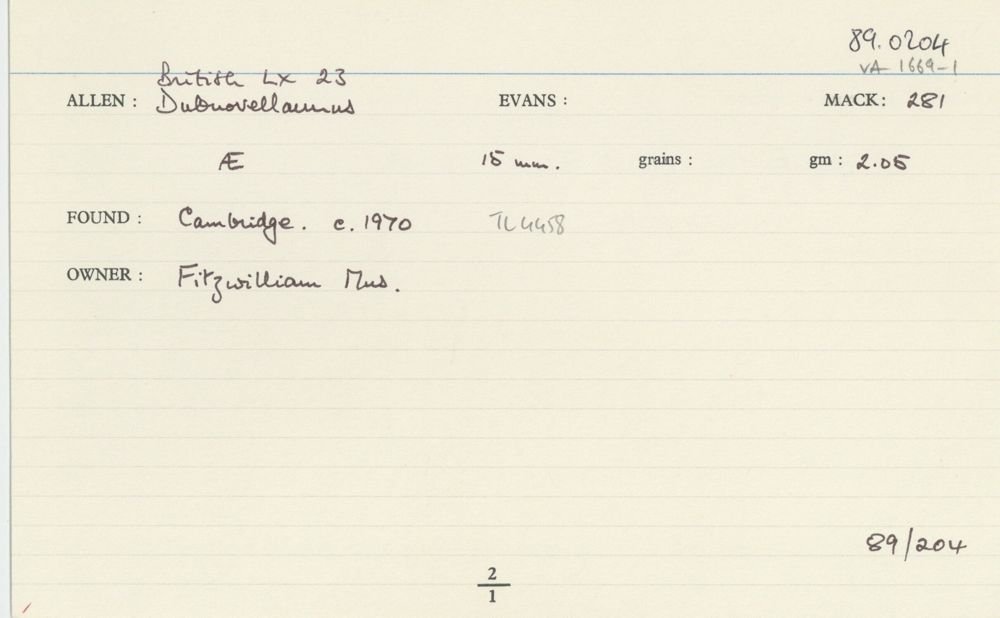 89.0204
VA 1669-1
British Lx 23
ALLEN : Dubnovellaunus EVANS : MACK: 281
Æ 15 mm. grains : gm : 2.05
FOUND : Cambridge. c. 1970 TL 4458
OWNER : Fitzwilliam Mus.
89/204
2
1